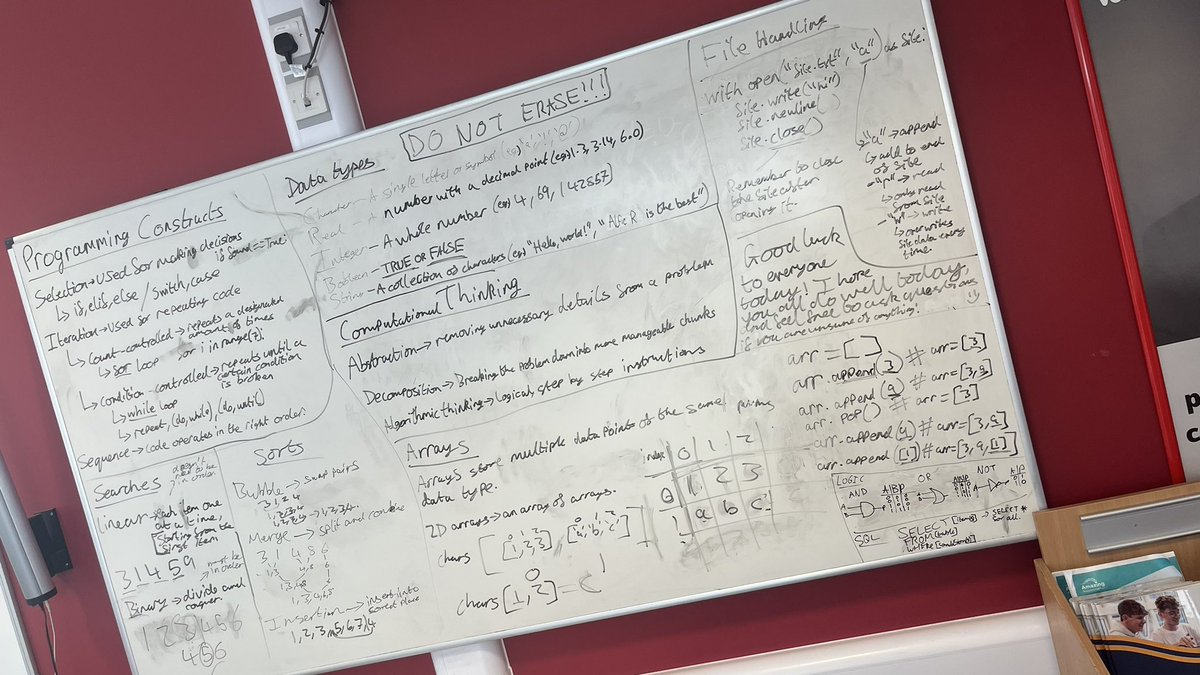 DO NOT ERASE!!!
Programming Constructs
Selection → Used for making decisions
if found == True:
↳ if, elif, else / Switch, case
Iteration → Used for repeating code
↳ Count-controlled → repeats a designated
amount of times
↳ for loop
for i in range(7):
↳ Condition-controlled → repeats until a
certain condition
is broken
↳ while loop
↳ repeat, (do, while), (do, until)
Sequence → Code operates in the right order.
Data types
Character - A single letter or symbol (eg)
Real - A number with a decimal point (eg) 1.3, 3.14, 6.0)
Integer - A whole number (eg) 4, 69, 142857)
Boolean - TRUE OR FALSE
String - A collection of characters (eg) "Hello, world!", "Alfie R is the best")
Computational Thinking
Abstraction → removing unnecessary details from a problem
Decomposition → Breaking the problem down into more manageable chunks
Algorithmic thinking → logical, step by step instructions
File Handling
with open("file.txt", "a") as file:
file.write("hi")
file.newline()
file.close()
Remember to close
the file after
opening it.
"a" → append
↳ add to end
of file
→ read
↳ only read
from file
"w" → write
↳ overwrites
file data every
time.
Good luck
to everyone
today! I hope
you all do well today,
and feel free to ask questions
if you are unsure of anything!
Searches
doesn't
need to be
in order
Linear → each item one
at a time,
starting from the
first item
3 1 4 5 9
must be
in order
Binary → divide and
conquer
1 2 3 4 5 6
4 5 6
Sorts
Bubble → swap pairs
Merge → split and combine
3 1 4 8 6
Insertion → insert into
correct place
Arrays
Arrays store multiple data points of the same
data type.
2D arrays → an array of arrays.
chars
chars[1,2] = c
index 0 1 2
0 1 2 3
1 a b c
arr = []
arr.append(3) # arr=[3]
arr.append(9) # arr=[3,9]
arr.pop() # arr=[3]
arr.append(9) # arr=[3,9]
arr.append([1]) # arr=[3,9,[1]]
LOGIC
AND OR NOT
SQL
SELECT [items] → SELECT *
for all.
FROM [table]
WHERE [conditions]
Amazing